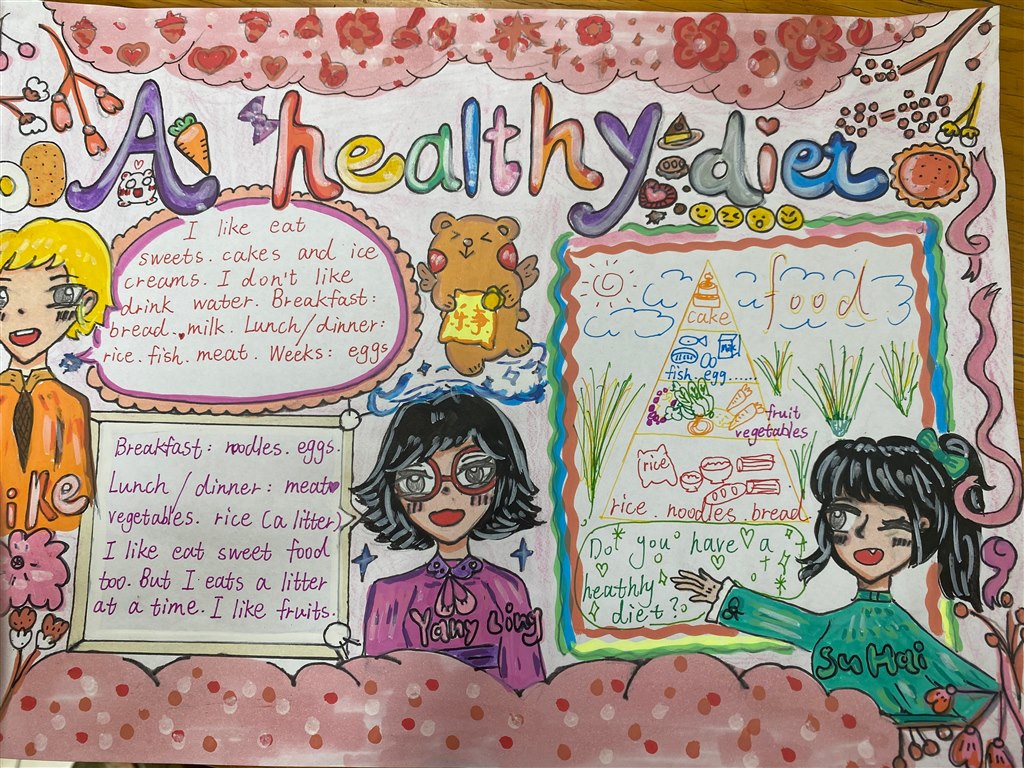 A healthy diet
I like eat
sweets. cakes and ice
creams. I don't like
drink water. Breakfast:
bread. milk. Lunch/dinner:
rice. fish. meat. Weeks: eggs
food
cake
fish. egg......
fruit
vegetables
rice
rice. noodles. bread
Do you have a
heathhy
diet?
ike
Breakfast: noodles. eggs.
Lunch / dinner: meat
vegetables. rice (a litter)
I like eat sweet food
too. But I eats a litter
at a time. I like fruits.
Yany Ling
Su Hai